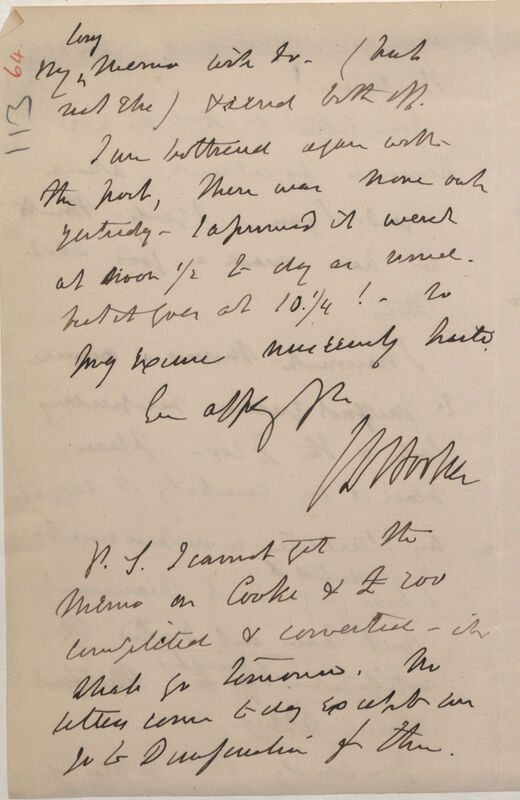 long
my Memo with do - (but
not the) & send both off.
I am bothered again with
the post, there was none out
yesterday - I assumed it went
at noon 1/2 to day as usual.
but it goes at 10.1/4 ! - so
pray excuse necessary haste.
Ever affy yrs
J D Hooker
P. S. I cannot get the
Memo on Cooke & £200
completed & corrected - it
shall go tomorrow. No
letters come to day except we
go to for them.
113
64.